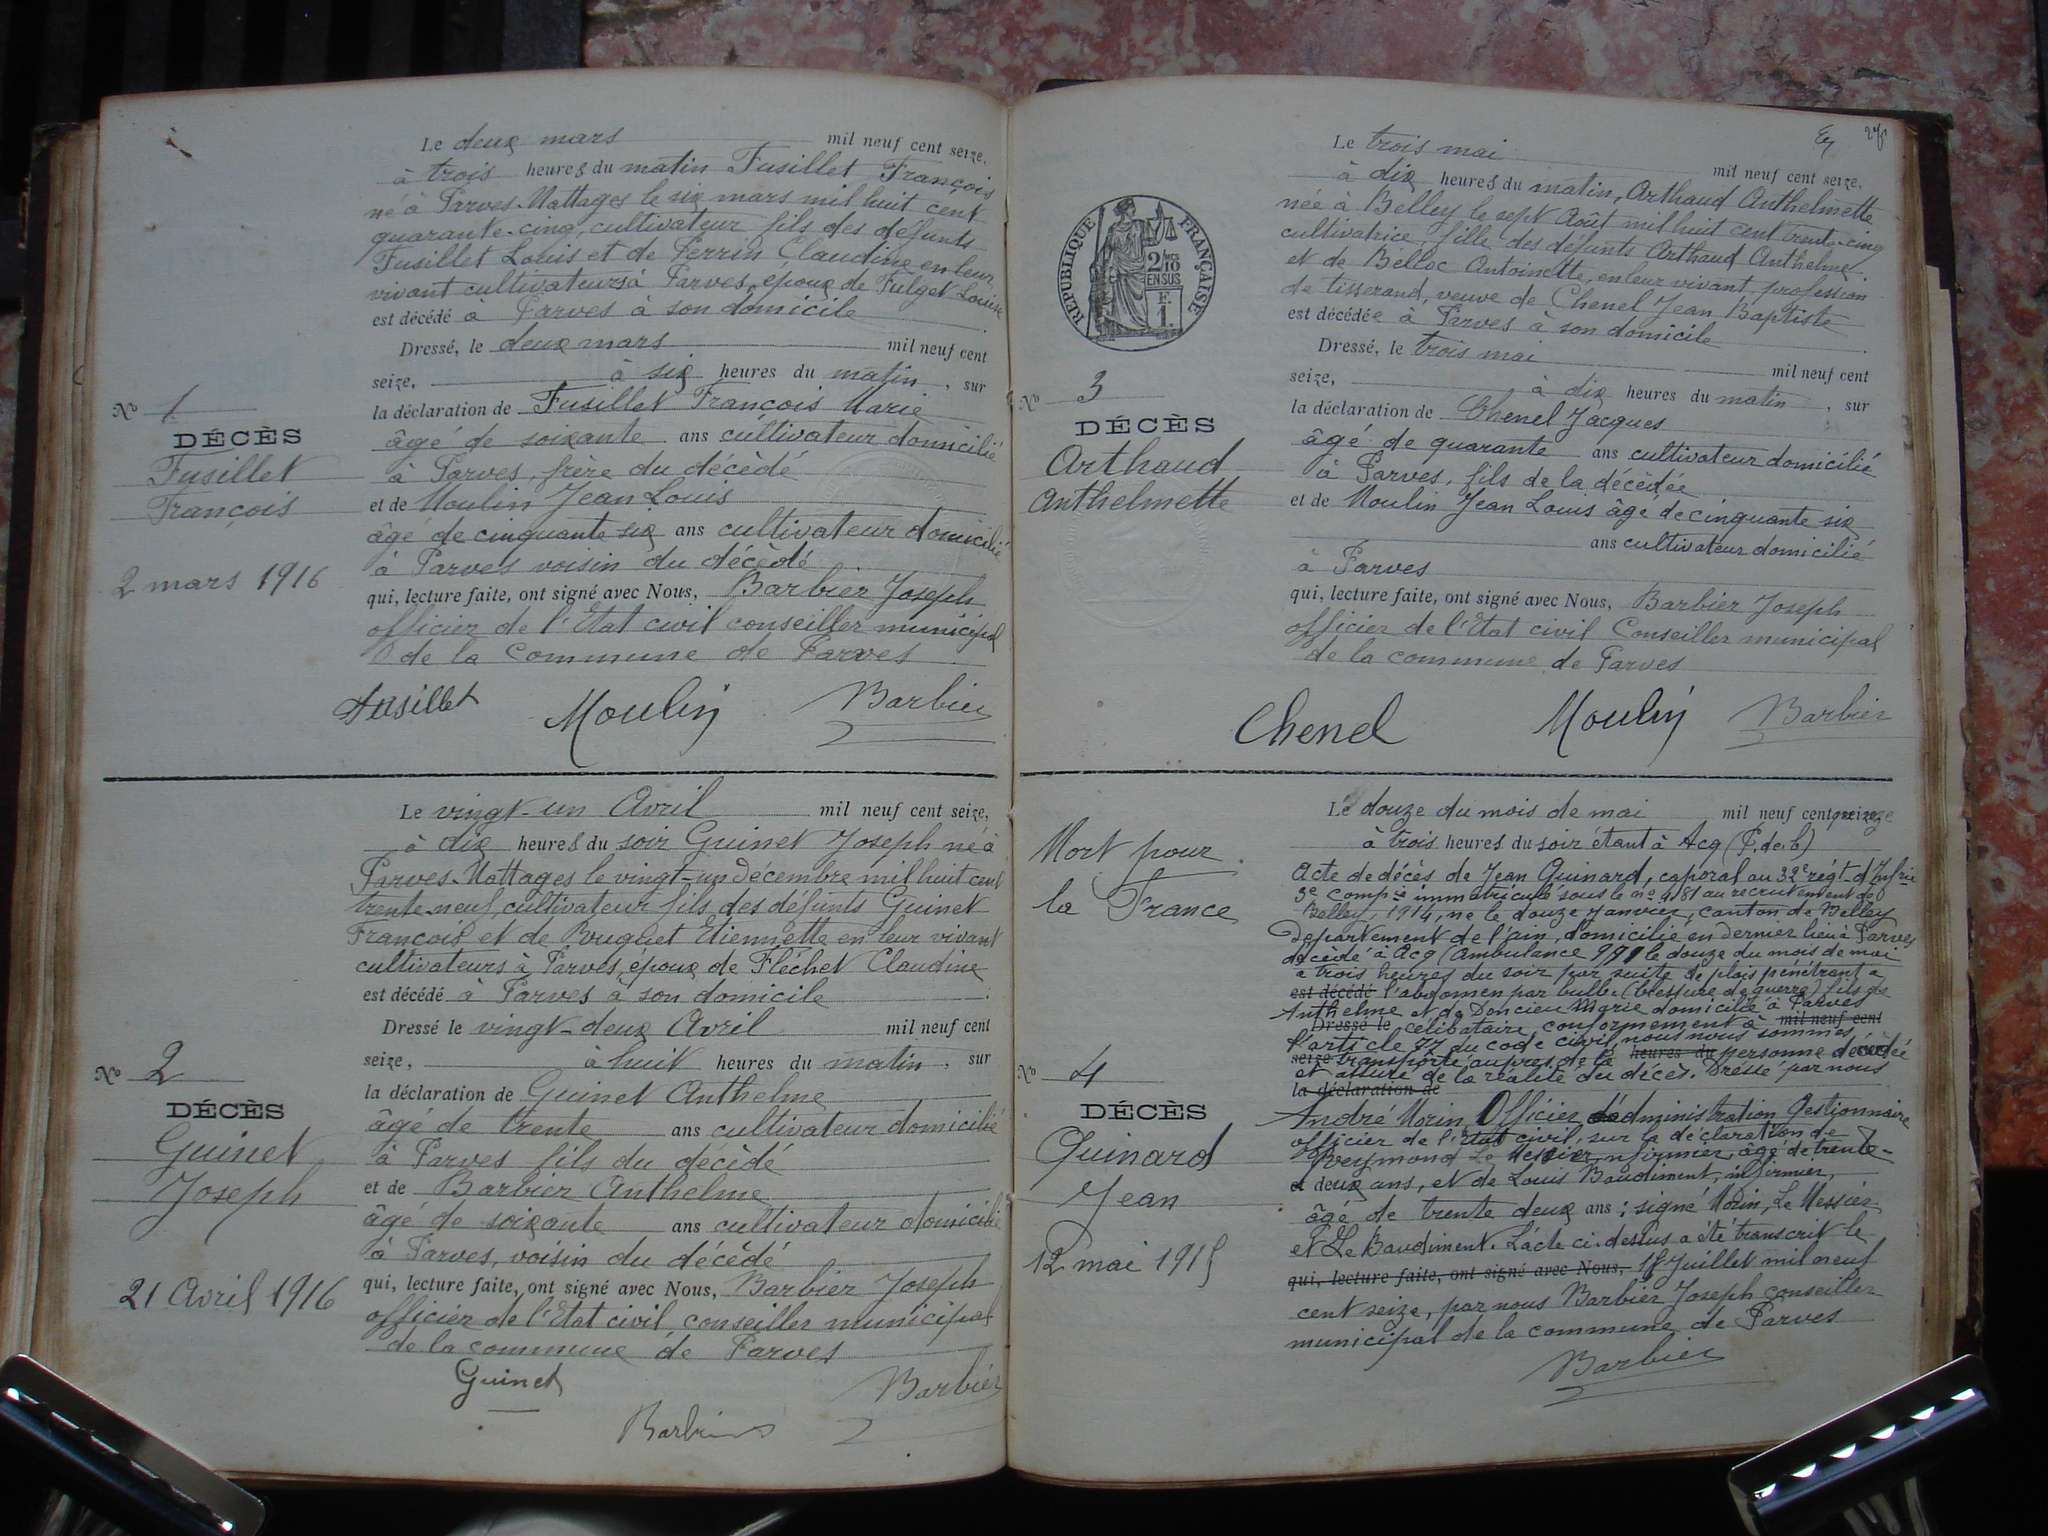 Le deux mars mil neuf cent seize,
à trois heures du matin Fusillet François
né à Parves-Nattages le six mars mil huit cent
quarante-cinq, cultivateur fils des défunts
Fusillet Louis et de Perrin Claudine en leur
vivant cultivateurs à Parves, époux de Fulget Louise
est décédé à Parves à son domicile
Dressé, le deux mars mil neuf cent
seize, à six heures du matin, sur
la déclaration de Fusillet François Marie
âgé de soixante ans cultivateur domicilié
à Parves, frère du décédé
et de Moulin Jean Louis
âgé de cinquante six ans cultivateur domicilié
à Parves voisin du décédé
qui, lecture faite, ont signé avec Nous, Barbier Joseph
officier de l'Etat civil conseiller municipal
de la Commune de Parves
Fusillet Moulin Barbier
No 1
DÉCÈS
Fusillet
François
2 mars 1916
Le vingt-un Avril mil neuf cent seize,
à dix heures du soir Guinet Joseph né à
Parves-Nattages le vingt-un Décembre mil huit cent
trente-neuf, cultivateur fils des défunts Guinet
François et de Bouguet Etiennette en leur vivant
cultivateurs à Parves, époux de Fléchet Claudine
est décédé à Parves à son domicile
Dressé le vingt-deux Avril mil neuf cent
seize, à huit heures du matin, sur
la déclaration de Guinet Anthelme
âgé de trente ans cultivateur domicilié
à Parves fils du décédé
et de Barbier Anthelme
âgé de soixante ans cultivateur domicilié
à Parves, voisin du décédé
qui, lecture faite, ont signé avec Nous, Barbier Joseph
officier de l'Etat civil conseiller municipal
de la commune de Parves
Guinet Barbier
Barbier
No 2
DÉCÈS
Guinet
Joseph
21 Avril 1916
Le trois mai mil neuf cent seize,
à dix heures du matin, Arthaud Anthelmette
née à Belley le sept Août mil huit cent trente-cinq
cultivatrice, fille des défunts Arthaud Anthelme
et de Belloc Antoinette, en leur vivant, profession
de tisserand, veuve de Chenel Jean Baptiste
est décédée à Parves à son domicile
Dressé, le trois mai mil neuf cent
seize, à dix heures du matin, sur
la déclaration de Chenel Jacques
âgé de quarante ans cultivateur domicilié
à Parves, fils de la décédée
et de Moulin Jean Louis âgé de cinquante six
ans cultivateur domicilié
à Parves
qui, lecture faite, ont signé avec Nous, Barbier Joseph
officier de l'Etat civil Conseiller municipal
de la commune de Parves
Chenel Moulin Barbier
RÉPUBLIQUE FRANÇAISE
2/10
EN SUS
F.
1.
No 3
DÉCÈS
Arthaud
Anthelmette
Le douze du mois de mai mil neuf cent quinze
à trois heures du soir étant à Acq (P. de. C)
Acte de décès de Jean Quinard, caporal au 32e régt d'Infrie
3e Compie immatriculé sous le no 981 au recrutement de
Belley, 1914, né le douze Janvier, canton de Belley
Département de l'ain, domicilié en dernier lieu à Parves
décédé à Acq (Ambulance le douze du mois de mai
à trois heures du soir par suite de plaie pénétrant à
est décédé l'abdomen par bulle (blessure de guerre) fils de
Anthelme et de Doncieu Marie domicilié à Parves
Dressé le célibataire, conformément à mil neuf cent
l'article 77 du code civil, nous nous sommes
seize transporté auprès de la heures du personne décédée
et assuré de la réalité du décès. Dressé par nous
la déclaration de
André Morin, Officier d'administration Gestionnaire
officier de l'état civil, sur la déclaration de
Reymond Le Messier, infirmier, âgé de trente-
deux ans, et de Louis Baudiment, infirmier,
âgé de trente deux ans; signé Morin, Le Messier
et Le Baudiment. L'acte ci-dessus a été transcrit le
qui, lecture faite, ont signé avec Nous, 18 Juillet mil neuf
cent seize, par nous Barbier Joseph conseiller
municipal de la commune de Parves
Barbier
Mort pour
la France
No 4
DÉCÈS
Quinard
Jean
12 mai 1915